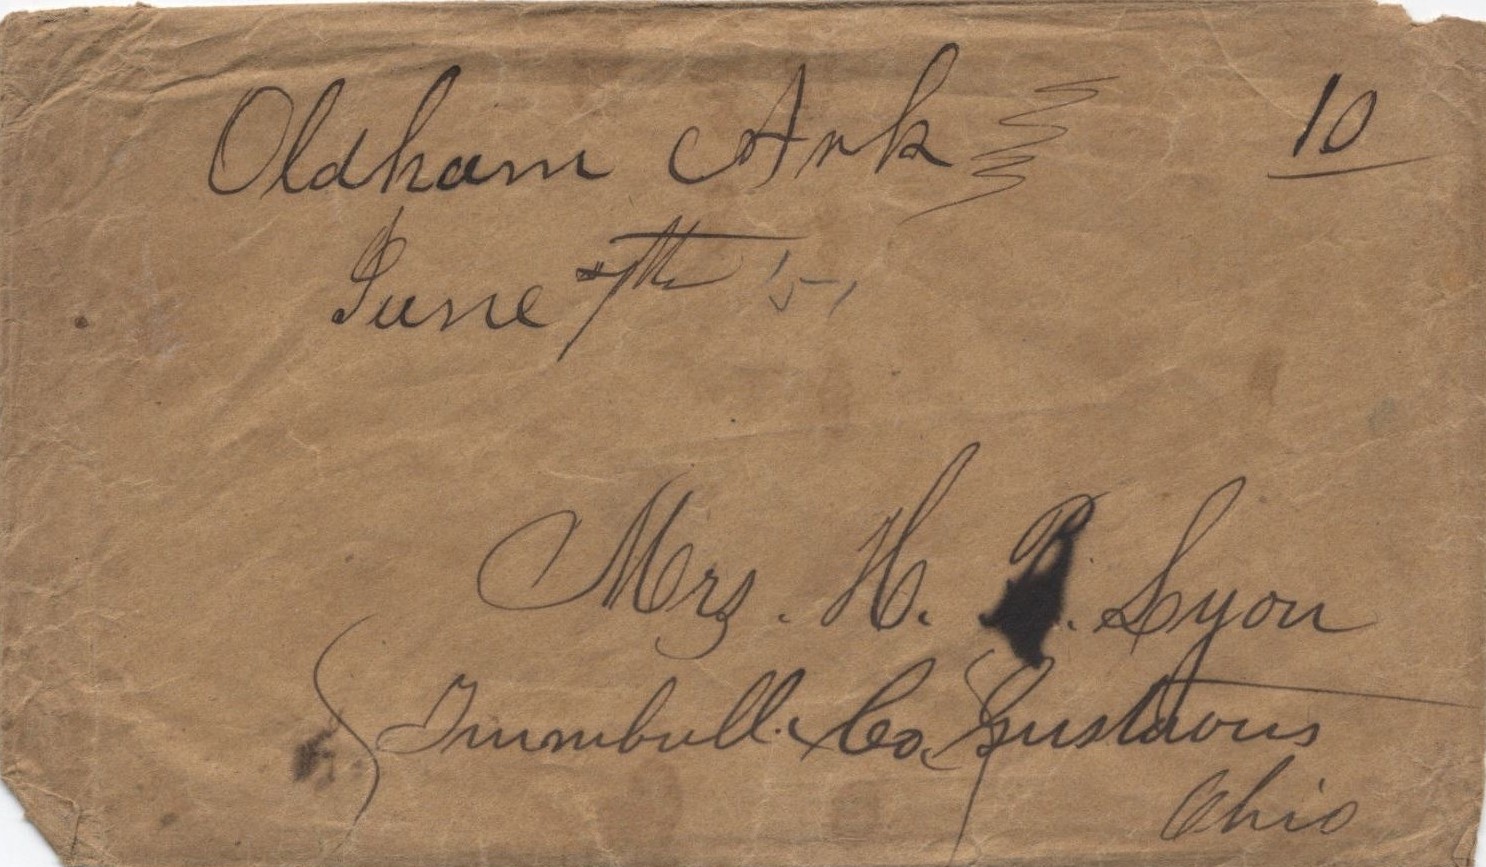 Oldham Ark 10
June 7th
Mrs. H. B. Lyon
Trumbull Co. Gustavus
Ohio